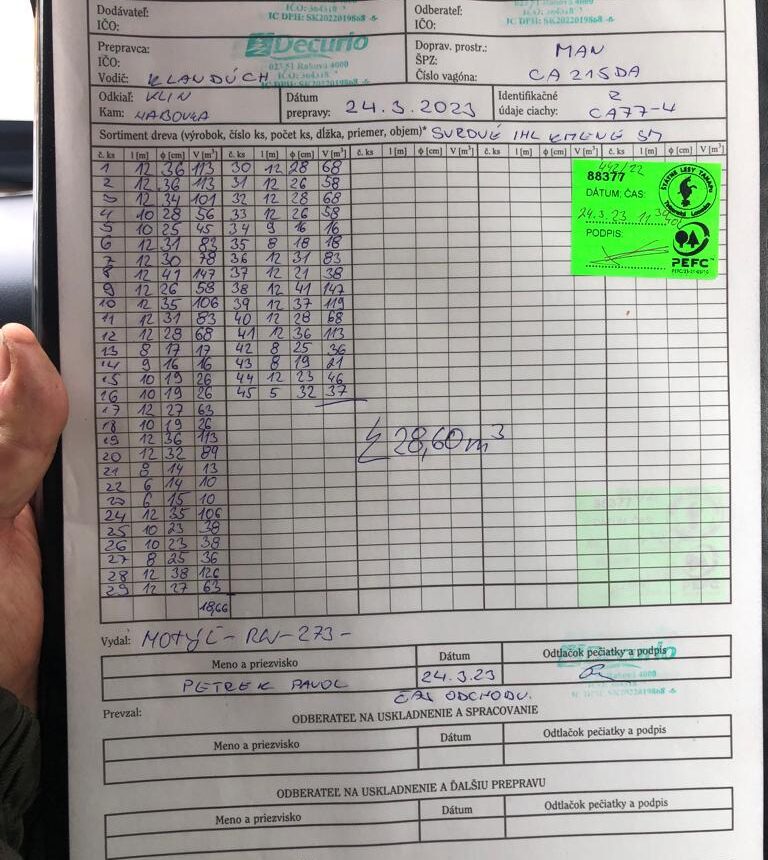 Dodávateľ:
IČO:
IČ DPH: SK2022019868 -6-
Odberateľ:
IČO:
IČ DPH: SK2022019868 -6-
Prepravca:
IČO:
Vodič: KLANDÚCH
Decurio
023 51 Raková 4000
IČ DPH: SK2022019868 -6-
Doprav. prostr.: MAN
ŠPZ:
Číslo vagóna: CA 215DA
Odkiaľ: KLIN
Kam:
Dátum
prepravy: 24.3.2023
Identifikačné 2
údaje ciachy: CA77-4
Sortiment dreva (výrobok, číslo ks, počet ks, dĺžka, priemer, objem)* SUROVÉ IHL KMENE SM
č. ks l [m] ϕ [cm] V [m³] č. ks l [m] ϕ [cm] V [m³] č. ks l [m] ϕ [cm] V [m³] č. ks l [m] ϕ [cm] V [m³] č. ks l [m] ϕ [cm] V [m³]
1 12 36 113 30 12 28 68
2 12 36 113 31 12 26 58
3 12 34 101 32 12 28 68
4 10 28 56 33 12 26 58
5 10 25 45 34 9 16 16
6 12 31 83 35 8 18 18
7 12 30 78 36 12 31 83
8 12 41 147 37 12 21 38
9 12 26 58 38 12 41 147
10 12 35 106 39 12 37 119
11 12 31 83 40 12 28 68
12 12 28 68 41 12 36 113
13 8 17 17 42 8 25 36
14 9 16 16 43 8 19 21
15 10 19 26 44 12 23 46
16 10 19 26 45 5 32 37
17 12 27 63
18 10 19 26
19 12 36 113
20 12 32 89
21 8 14 13
22 6 14 10
23 6 15 10
24 12 35 106
25 10 23 38
26 10 23 38
27 8 25 36
28 12 38 126
29 12 27 63
18,66
Σ 28,60 m³
442/22
88377
DÁTUM; ČAS:
24.3.23 11
PODPIS:
ŠTÁTNE LESY TANAPu
Tatranská Lomnica
PEFC
Vydal: MOTÝĽ - RW - 273 -
Meno a priezvisko Dátum Odtlačok pečiatky a podpis
PETREK PAVOL 24.3.23
ČAS ODCHODU.
Decurio
IČ DPH: SK2022019868 -6-
Prevzal: ODBERATEĽ NA USKLADNENIE A SPRACOVANIE
Meno a priezvisko Dátum Odtlačok pečiatky a podpis
ODBERATEĽ NA USKLADNENIE A ĎALŠIU PREPRAVU
Meno a priezvisko Dátum Odtlačok pečiatky a podpis